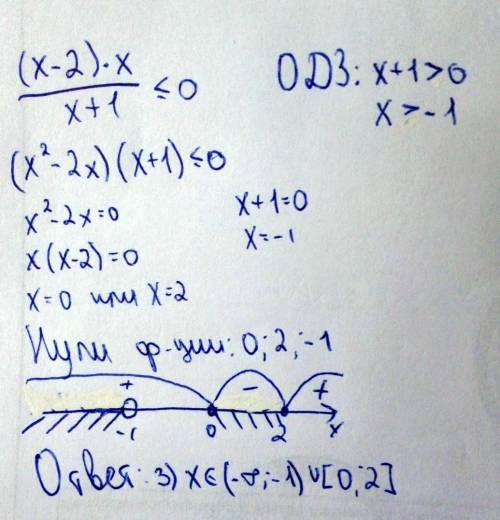 (x-2)·x / x+1 ≤0
ОДЗ: x+1>0
x>-1
(x²-2x)(x+1)≤0
x²-2x=0
x+1=0
x(x-2)=0
x=-1
x=0 или x=2
Нули ф-ции: 0; 2; -1
+ - +
-1 0 2 x
Ответ: 3) x∈(-∞;-1)∪[0;2]